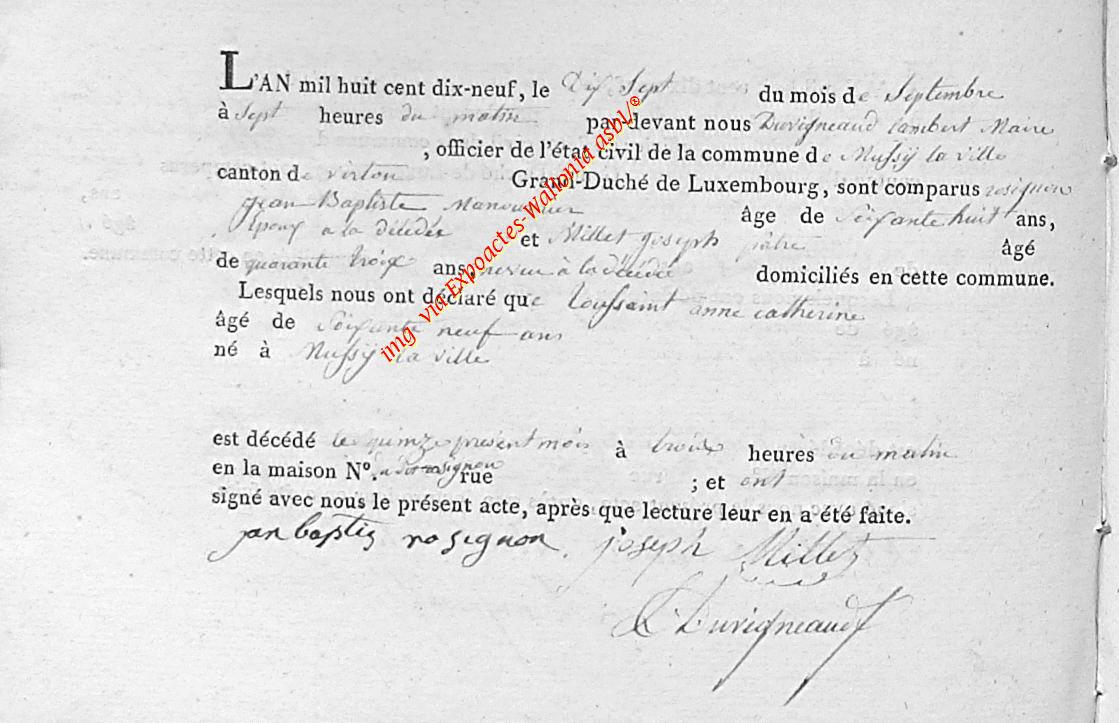 L'AN mil huit cent dix-neuf, le Dix Sept du mois de Septembre
à Sept heures du matin par-devant nous Duvigneaud lambert Maire
, officier de l'état civil de la commune de Mussÿ la ville
canton de virton Grand-Duché de Luxembourg, sont comparus rosignon
jean Baptiste Manouvrier âge de Soixante huit ans,
Epoux a la décédée et Millet joseph pâtre âgé
de quarante troix ans, neveu à la décédée domiciliés en cette commune.
Lesquels nous ont déclaré que toussaint anne catherine
âgé de Soixante neuf ans
né à Mussÿ la ville
est décédé le quinze présent mois à troix heures du matin
en la maison Nº. dudit rosignon rue ; et ont
signé avec nous le présent acte, après que lecture leur en a été faite.
jan baptis rosignon. joseph Millet
L Duvigneaud
img via Expoactes-Wallonia asbl/©